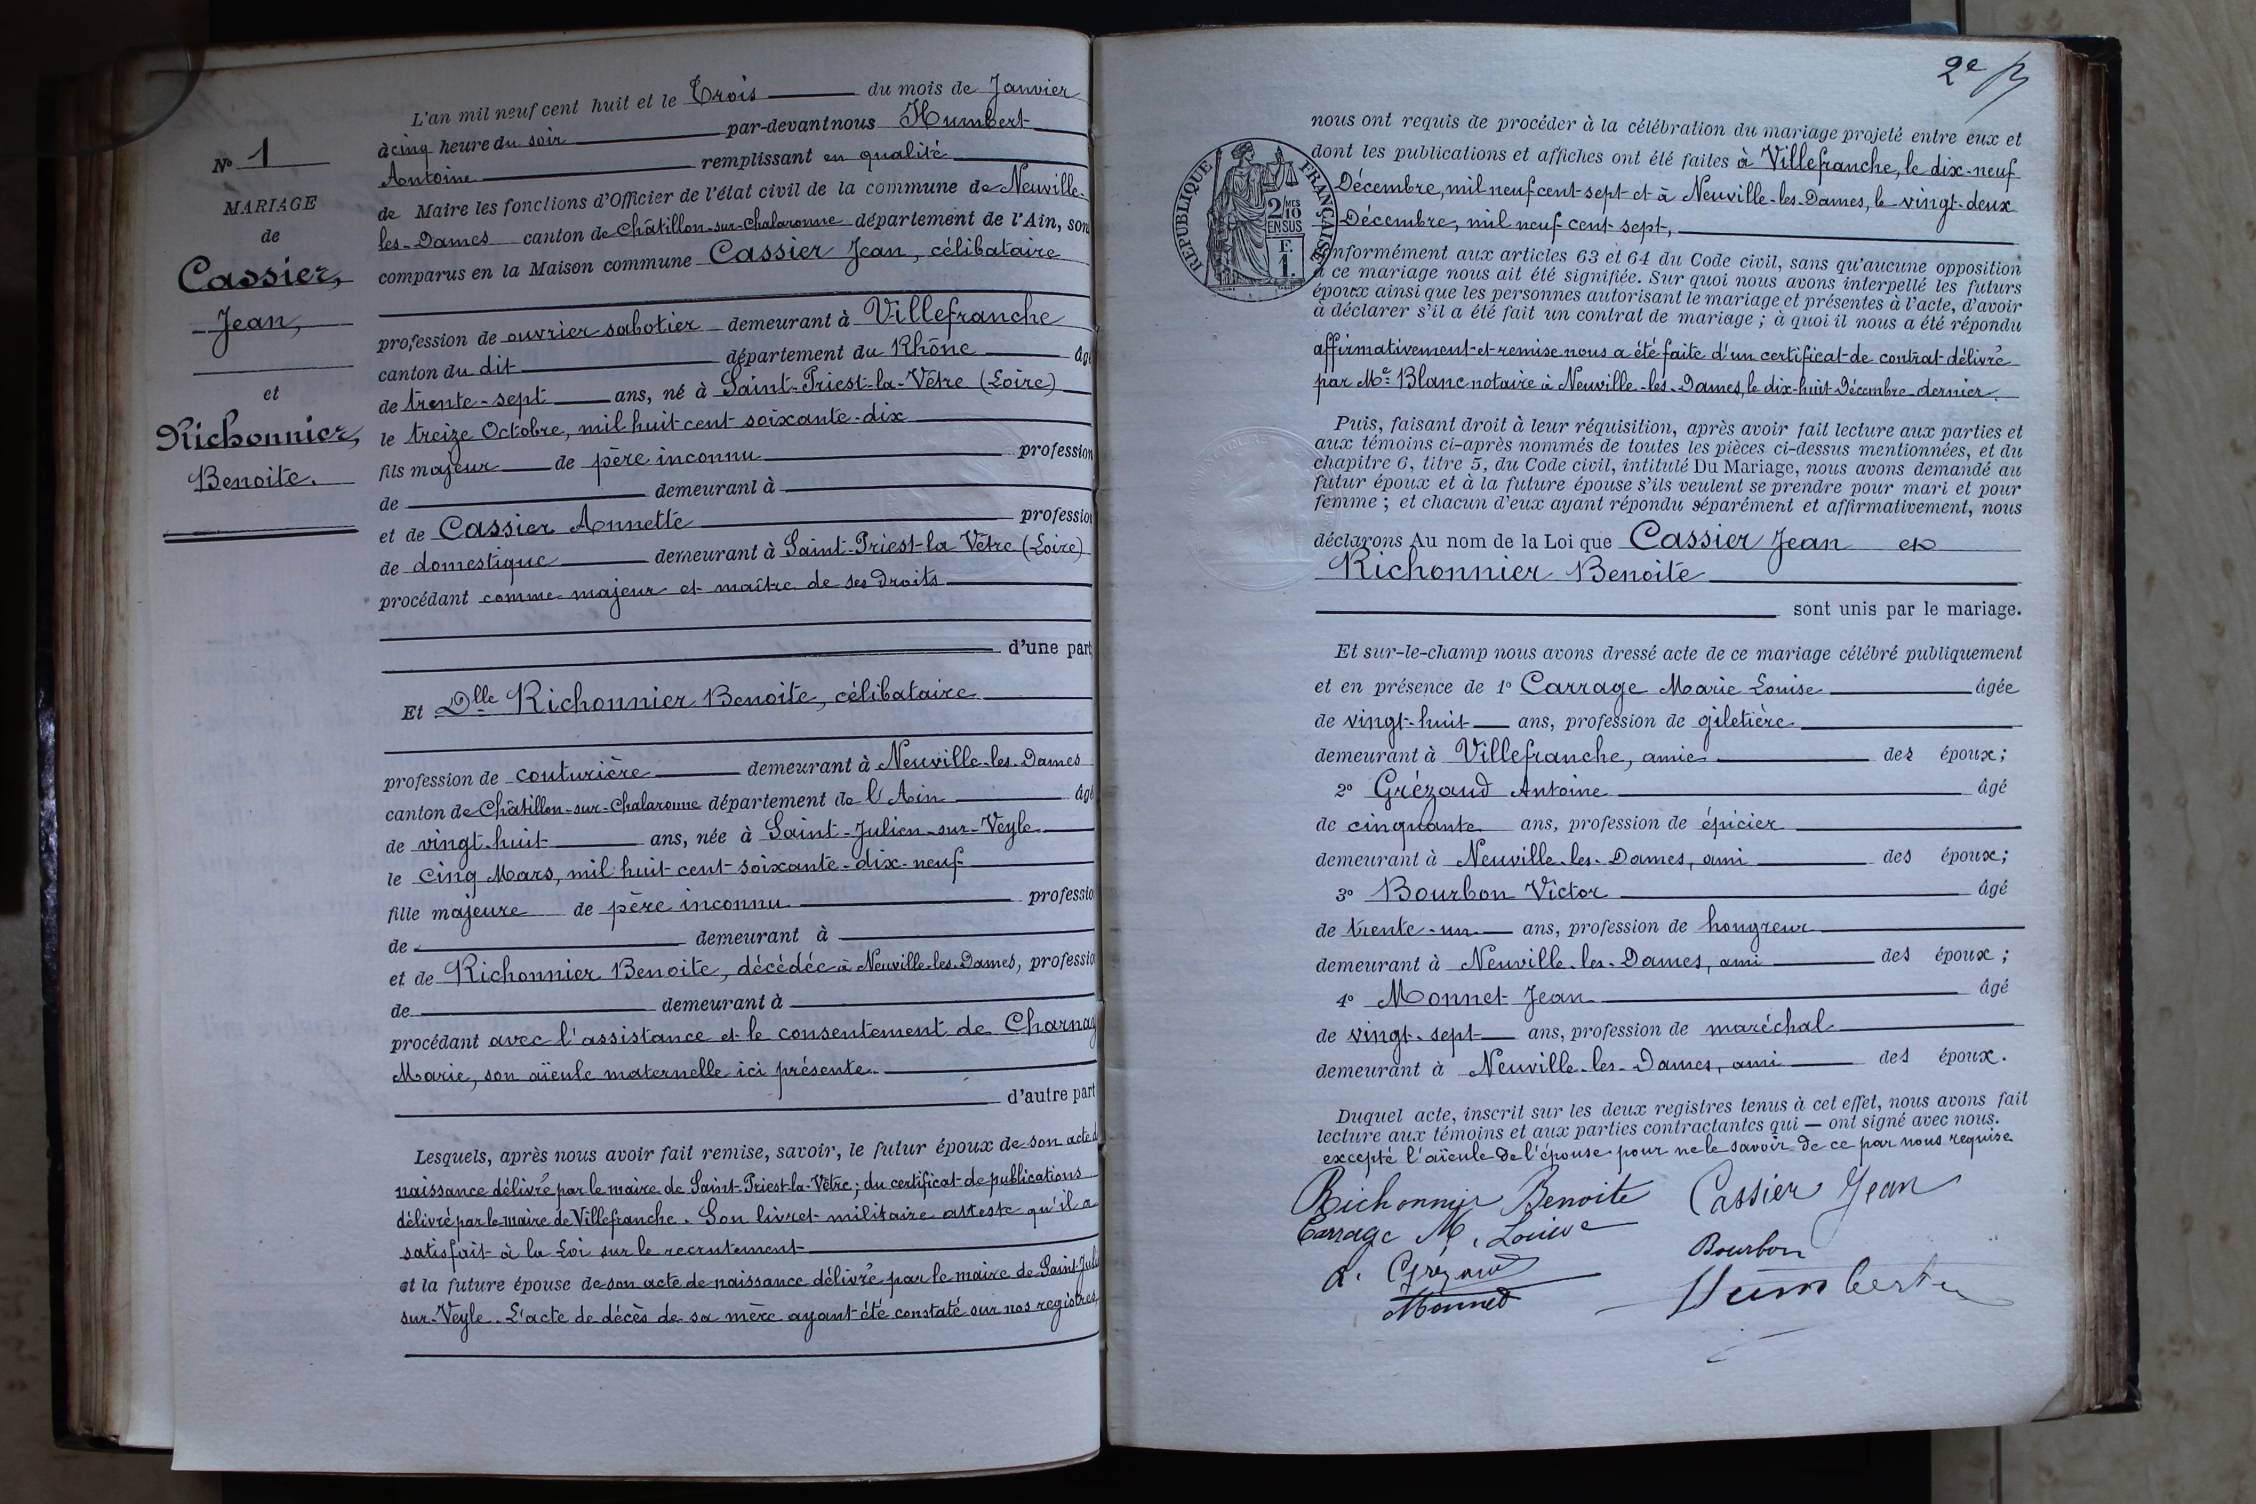 N° 1
MARIAGE
de
Cassier,
Jean,
et
Richonnier,
Benoite.
L'an mil neuf cent huit et le Trois du mois de Janvier
à cinq heure du soir par-devant nous Humbert
Antoine remplissant en qualité
de Maire les fonctions d'Officier de l'état civil de la commune de Neuville-
les-Dames canton de Châtillon-sur-Chalaronne département de l'Ain, son
comparus en la Maison commune Cassier Jean, célibataire
profession de ouvrier sabotier demeurant à Villefranche
canton du dit département du Rhône âgé
de trente-sept ans, né à Saint-Priest-la-Vêtre (Loire)
le treize Octobre, mil huit cent soixante-dix
fils majeur de père inconnu profession
de demeurant à
et de Cassier Annette profession
de domestique demeurant à Saint-Priest-la Vêtre (Loire)
procédant comme majeur et maître de ses droits
d'une part
Et Dlle Richonnier Benoite, célibataire
profession de couturière demeurant à Neuville-les-Dames
canton de Châtillon-sur-Chalaronne département de l'Ain âgé
de vingt-huit ans, née à Saint-Julien-sur-Veyle
le cinq Mars, mil huit cent soixante-dix-neuf
fille majeure de père inconnu professio
de demeurant à
et de Richonnier Benoite, décédée à Neuville-les-Dames, professio
de demeurant à
procédant avec l'assistance et le consentement de Charnay
Marie, son aïeule maternelle ici présente.
d'autre part
Lesquels, après nous avoir fait remise, savoir, le futur époux de son acte d
naissance délivré par le maire de Saint-Priest-la-Vêtre; du certificat de publications
délivré par le maire de Villefranche. Son livret militaire atteste qu'il a
satisfait à la Loi sur le recrutement
et la future épouse de son acte de naissance délivré par le maire de Saint-Juli
sur-Veyle. L'acte de décès de sa mère ayant été constaté sur nos registres,
2e
RÉPUBLIQUE FRANÇAISE
2/10 MES
EN SUS
F.
1.
nous ont requis de procéder à la célébration du mariage projeté entre eux et
dont les publications et affiches ont été faites à Villefranche, le dix-neuf
Décembre, mil neuf cent sept et à Neuville-les-Dames, le vingt-deux
Décembre, mil neuf cent sept,
onformément aux articles 63 et 64 du Code civil, sans qu'aucune opposition
à ce mariage nous ait été signifiée. Sur quoi nous avons interpellé les futurs
époux ainsi que les personnes autorisant le mariage et présentes à l'acte, d'avoir
à déclarer s'il a été fait un contrat de mariage ; à quoi il nous a été répondu
affirmativement et remise nous a été faite d'un certificat de contrat délivré
par Me Blanc notaire à Neuville-les-Dames, le dix-huit Décembre dernier.
Puis, faisant droit à leur réquisition, après avoir fait lecture aux parties et
aux témoins ci-après nommés de toutes les pièces ci-dessus mentionnées, et du
chapitre 6, titre 5, du Code civil, intitulé Du Mariage, nous avons demandé au
futur époux et à la future épouse s'ils veulent se prendre pour mari et pour
femme ; et chacun d'eux ayant répondu séparément et affirmativement, nous
déclarons Au nom de la Loi que Cassier Jean et
Richonnier Benoite
sont unis par le mariage.
Et sur-le-champ nous avons dressé acte de ce mariage célébré publiquement
et en présence de 1° Carrage Marie Louise âgée
de vingt-huit ans, profession de giletière
demeurant à Villefranche, amie des époux;
2° Grézaud Antoine âgé
de cinquante ans, profession de épicier
demeurant à Neuville-les-Dames, ami des époux;
3° Bourbon Victor âgé
de trente-un ans, profession de hongreur
demeurant à Neuville-les-Dames, ami des époux;
4° Monnet Jean âgé
de vingt-sept ans, profession de maréchal
demeurant à Neuville-les-Dames, ami des époux.
Duquel acte, inscrit sur les deux registres tenus à cet effet, nous avons fait
lecture aux témoins et aux parties contractantes qui — ont signé avec nous.
excepté l'aïeule de l'épouse pour ne le savoir de ce par nous requise
Richonnier Benoite Cassier Jean
Carrage M. Louise
Bourbon
A. Grézaud
Monnet
Humbert